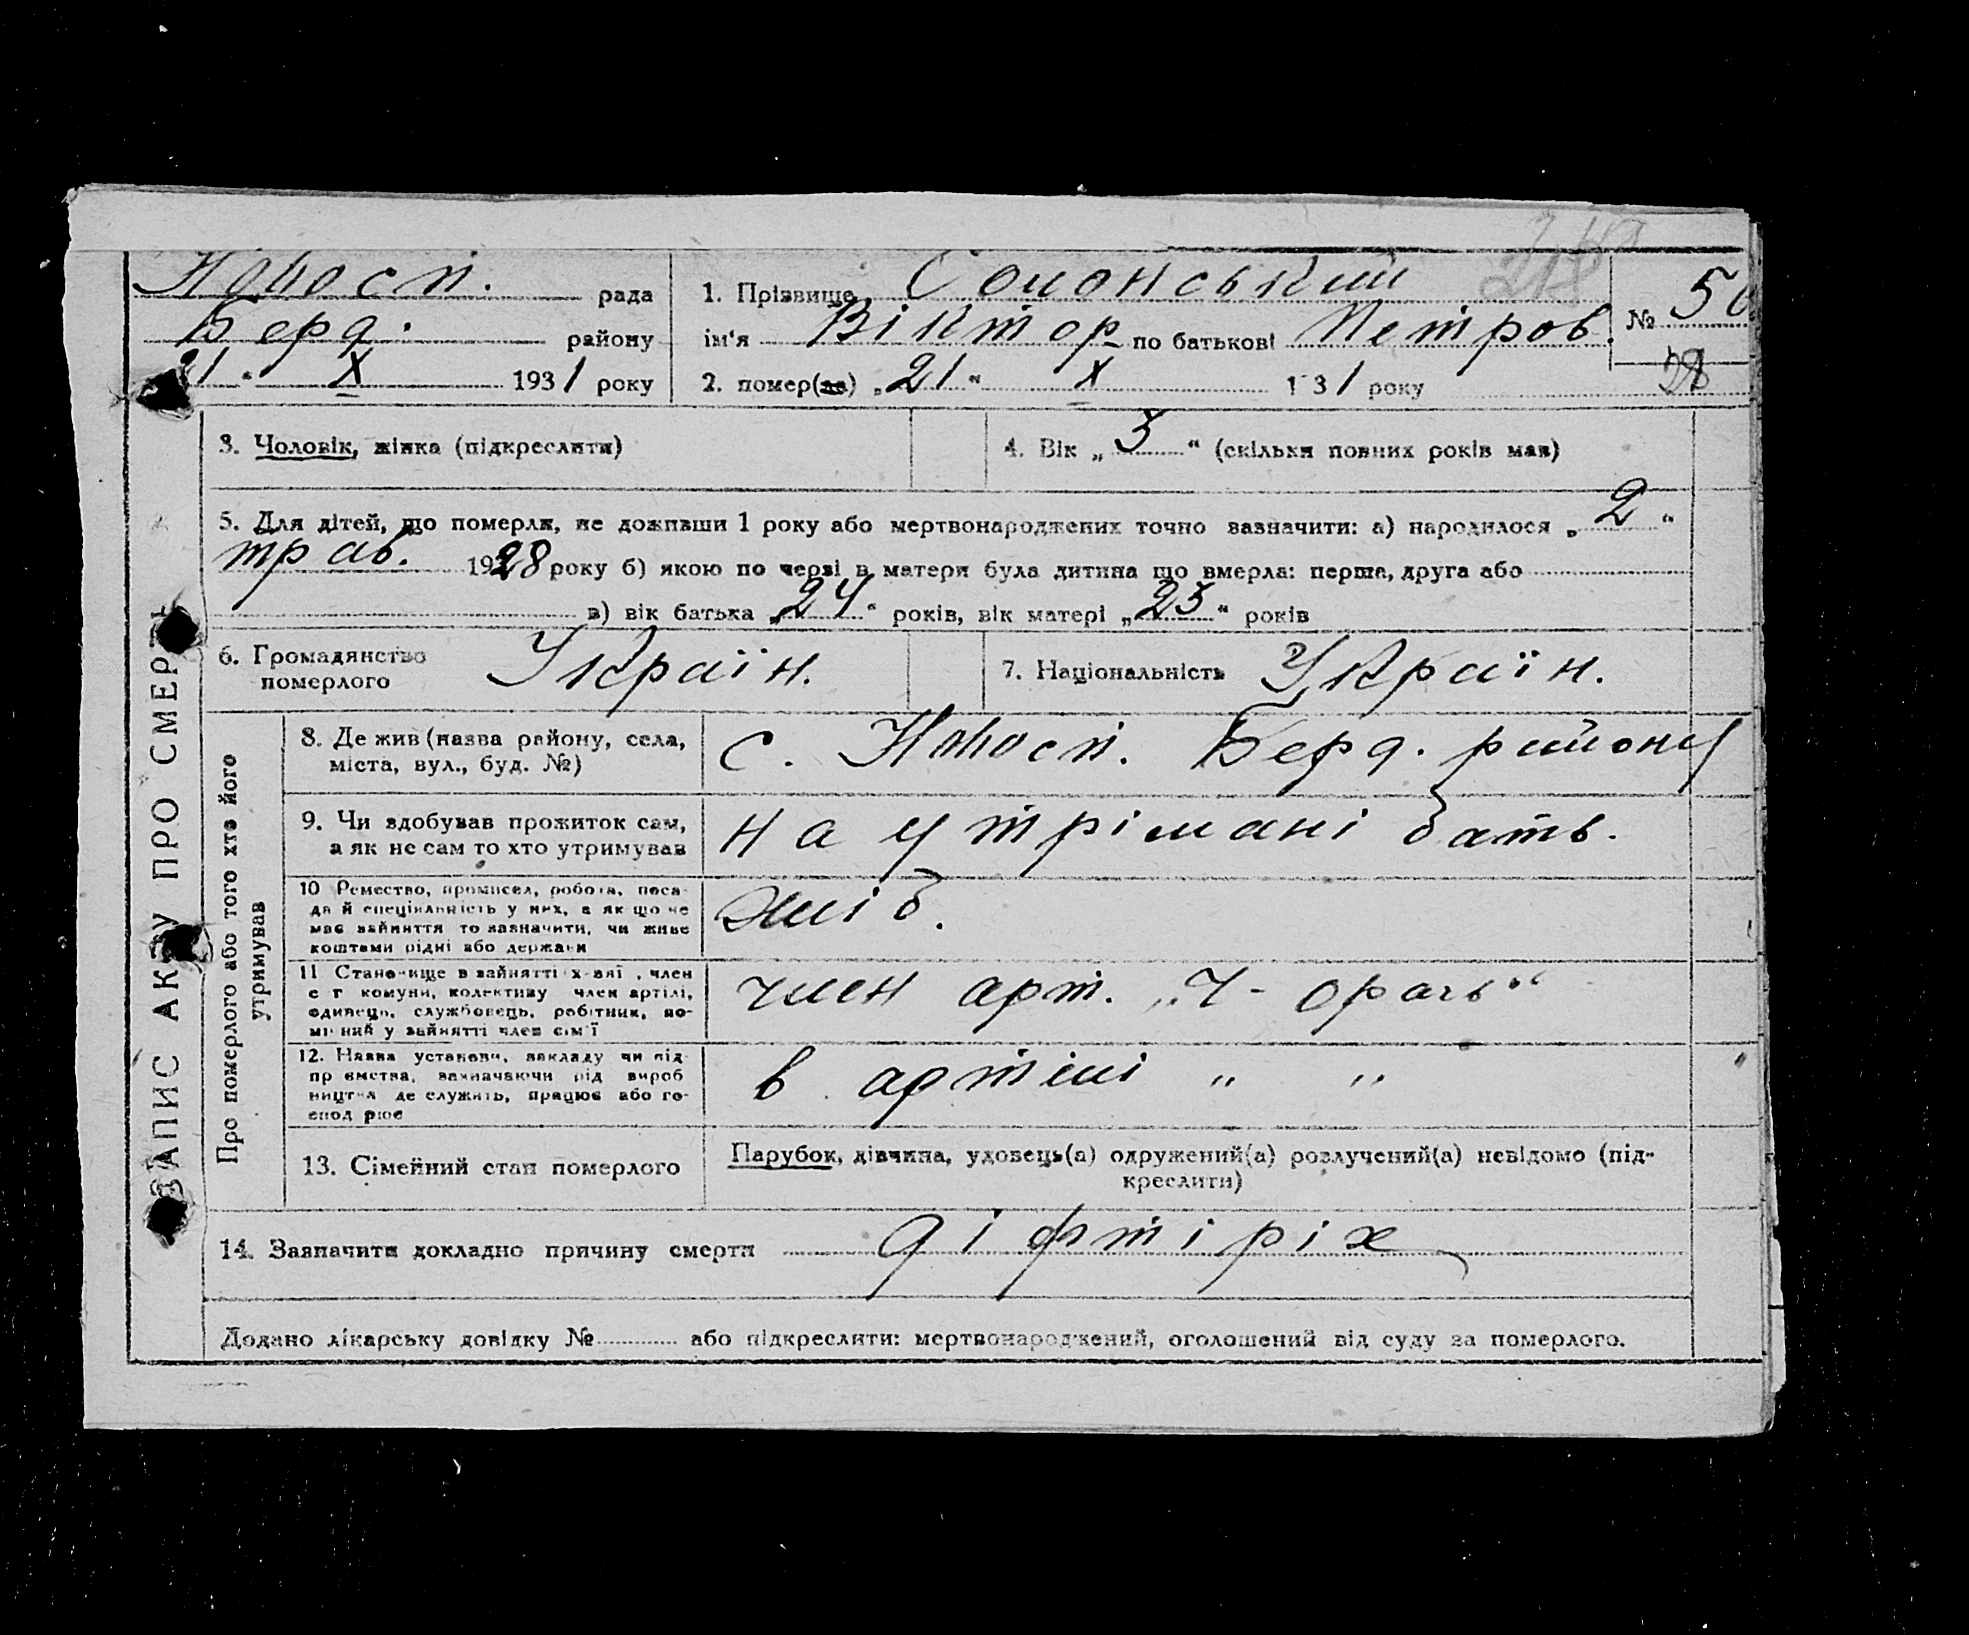 Новосп. рада
Берд. району
21 " X 1931 року
1. Прізвище Солонський
ім'я Віктор по батькові Петров.
2. помер(ла) „21" X 131 року
№ 50
28
3. Чоловік, жінка (підкреслити)
4. Вік „3" (скільки повних років мав)
5. Для дітей, що померли, не доживши 1 року або мертвонароджених точно зазначити: а) народилося „2"
трав. 1928 року б) якою по черзі в матери була дитина що вмерла: перша, друга або
в) вік батька „24" років, вік матері „23" років
6. Громадянство
померлого
Україн.
7. Національність Україн.
ЗАПИС АКТУ ПРО СМЕРТЬ
Про померлого або того хто його
утримував
8. Де жив (назва району, села,
міста, вул., буд. №)
с. Новосп. Берд. району
9. Чи здобував прожиток сам,
а як не сам то хто утримував
на утрімані бать.
10 Ремество, промисел, робота, поса-
да й спеціяльність у них, а як що не
має зайняття то зазначити, чи живе
коштами рідні або держави
хліб.
11 Становище в зайнятті х-заї , член
с г комуни, колективу член артілі,
одинець, службовець, робітник, по-
мічний у зайнятті член сім'ї
член арт. „Ч - орачь"
12. Назва установи, закладу чи під-
пр ємства, зазначаючи рід вироб
ництва де служить, працює або го-
спод рює
в артілі " "
13. Сімейний стан померлого
Парубок, дівчина, удовець(а) одружений(а) розлучений(а) невідомо (під-
креслити)
14. Зазначити докладно причину смерти діфтіріх
Додано лікарську довідку № або підкреслити: мертвонароджений, оголошений від суду за померлого.